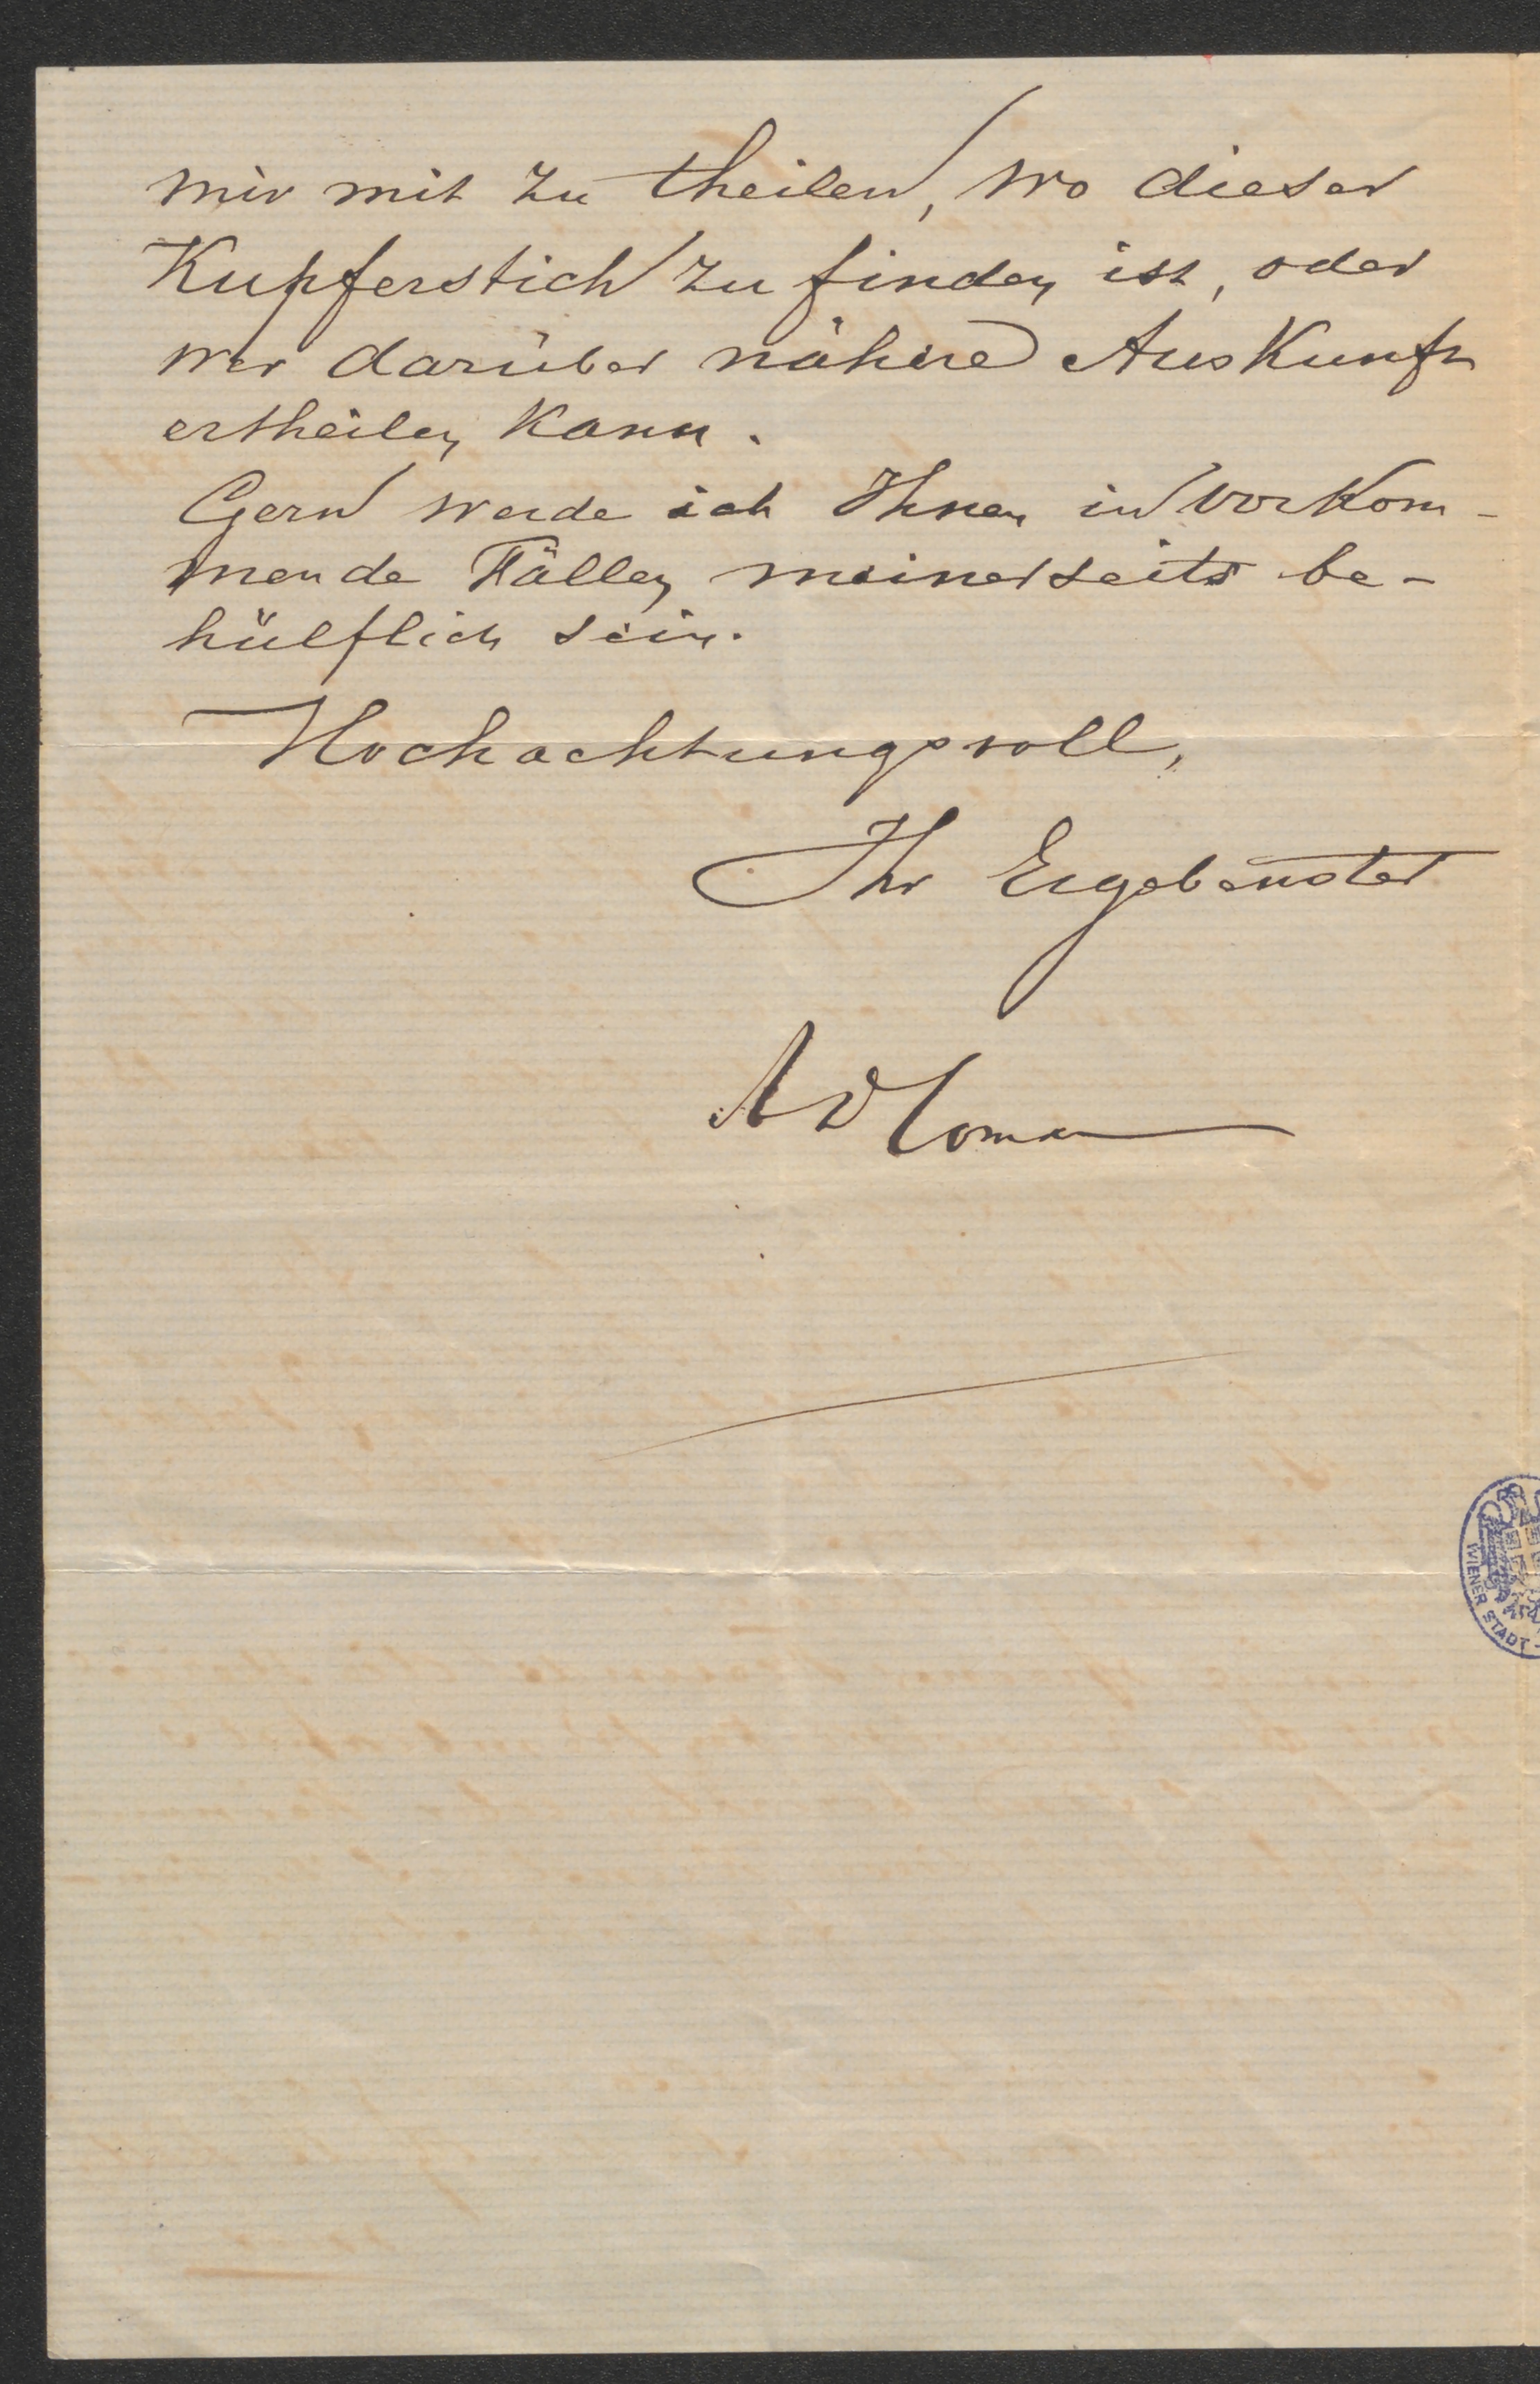 mir mit zu theilen, wo dieser
Kupferstich zu finden ist, oder
wer darüber nähere Auskunft
ertheilen kann.
Gern werde ich Ihnen in vorkom-
mende Fällen meinerseits be-
hülflich sein.
Hochachtungsvoll,
Ihr Ergebenster
WIENER STADT-